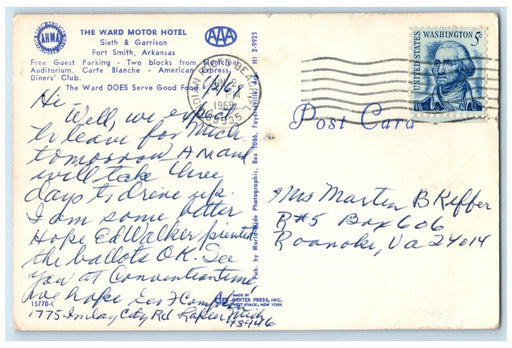 THE WARD MOTOR HOTEL
Sixth & Garrison
Fort Smith, Arkansas
Free Guest Parking - Two blocks from Municipal
Auditorium. Carte Blanche - American Express
Diners' Club.
The Ward DOES Serve Good Food
AHMA
AAA
HI 2-9925
INDIAN ROCKS BEACH
1969
33535
UNITED STATES
WASHINGTON 5c
Post Card
Hi
Well, we expect
to leave for Mich.
tomorrow AM and
will take three
days to drive up.
I am some better
Hope Ed Walker printed
the ballots O.K. See
you at Convention time
we hope
1775 Imlay City Rd Lapeer Mich
48446
Mrs Marten B Keffer
R#5 Box 606
Roanoke, Va 24014
Pub. by World Wide Photographic, Box 1086, Fayetteville
MADE BY
DEXTER PRESS, INC.
WEST NYACK, NEW YORK
15770-C